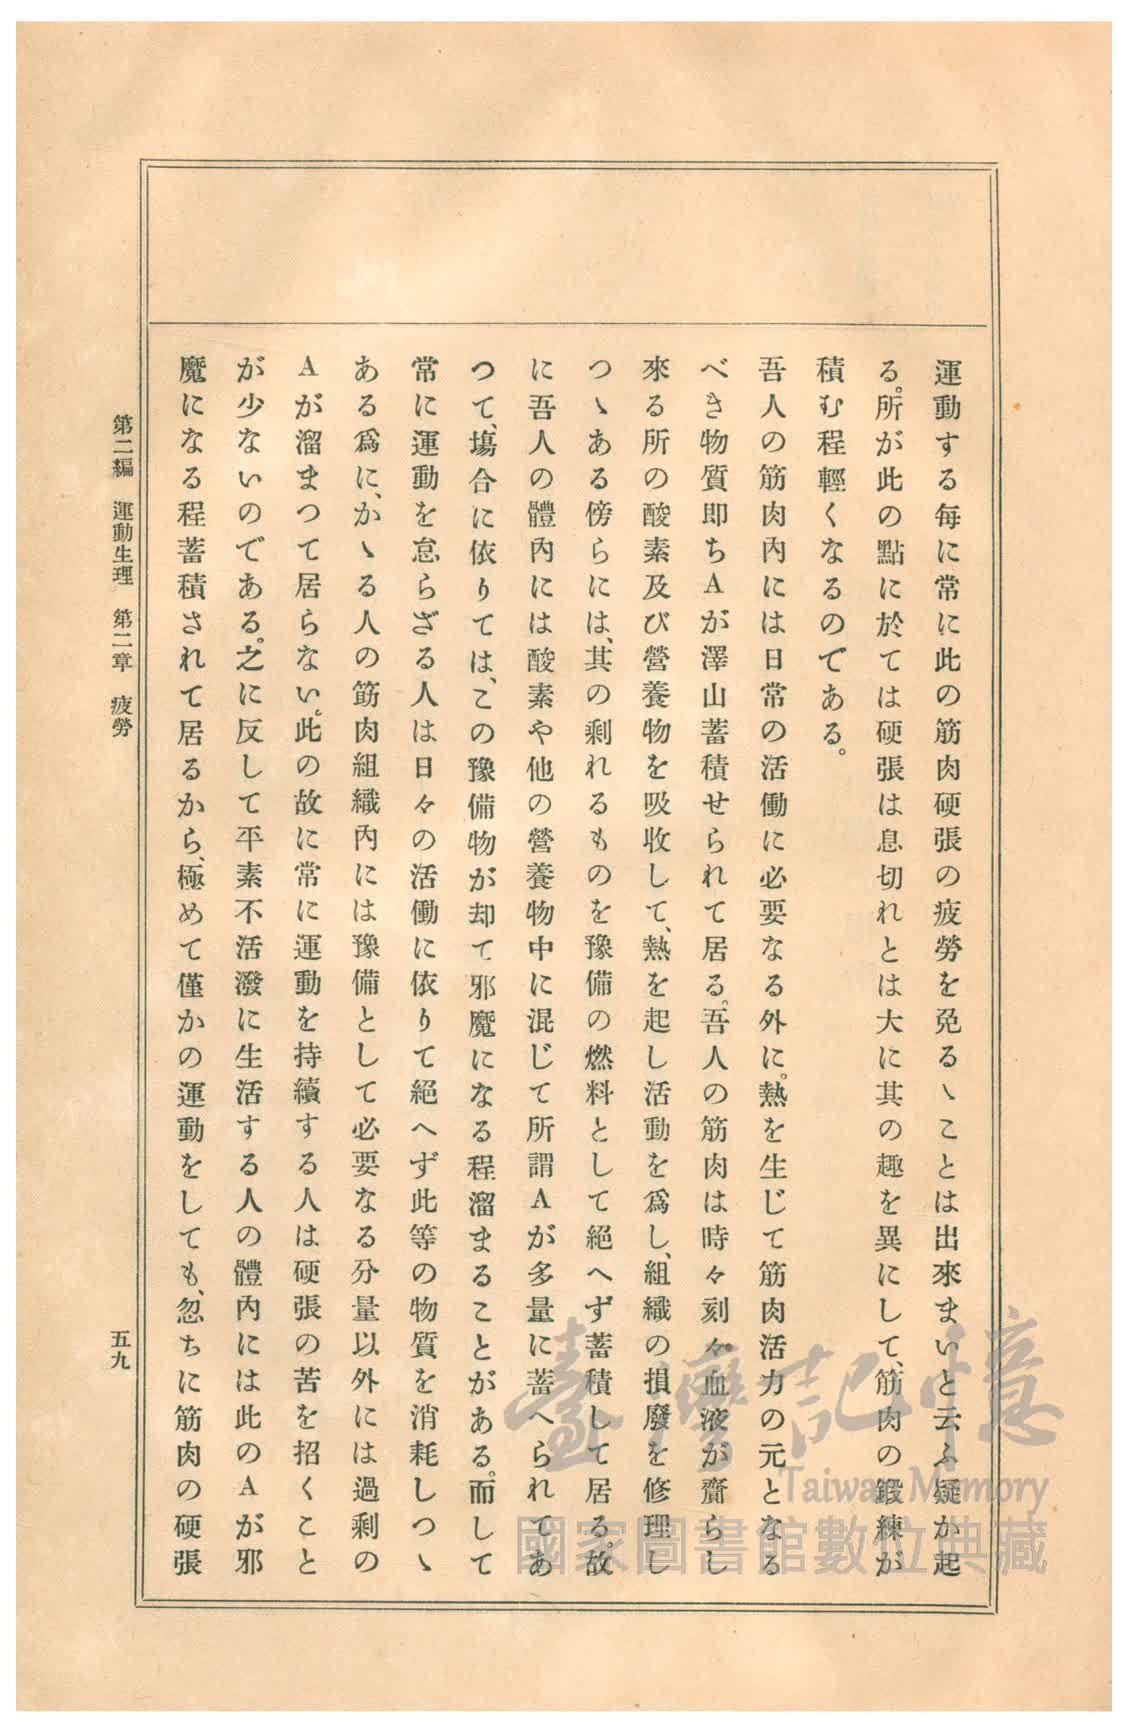 運動する每に常に此の筋肉硬張の疲勞を免るゝことは出來まいと云ふ疑か起
る。所が此の點に於ては硬張は息切れとは大に其の趣を異にして、筋肉の鍛練が
積む程輕くなるのである。
吾人の筋肉內には日常の活働に必要なる外に。熱を生じて筋肉活力の元となる
べき物質卽ちAが澤山蓄積せられて居る。吾人の筋肉は時々刻々血液が齎らし
來る所の酸素及び營養物を吸收して、熱を起し活動を爲し、組織の損廢を修理し
つゝある傍らには、其の剩れるものを豫備の燃料として絕へず蓄積して居る。故
に吾人の體內には酸素や他の營養物中に混じて所謂Aが多量に蓄へられてあ
つて、塲合に依りては、この豫備物が却て邪魔になる程溜まることがある。而して
常に運動を怠らざる人は日々の活働に依りて絕へず此等の物質を消耗しつゝ
ある爲に、かゝる人の筋肉組織內には豫備として必要なる分量以外には過剩の
Aが溜まつて居らない。此の故に常に運動を持續する人は硬張の苦を招くこと
が少ないのである。之に反して平素不活潑に生活する人の體內には此のAが邪
魔になる程蓄積されて居るから、極めて僅かの運動をしても、忽ちに筋肉の硬張
第二編 運動生理 第二章 疲勞
五九
臺灣記憶
Taiwan Memory
國家圖書館數位典藏